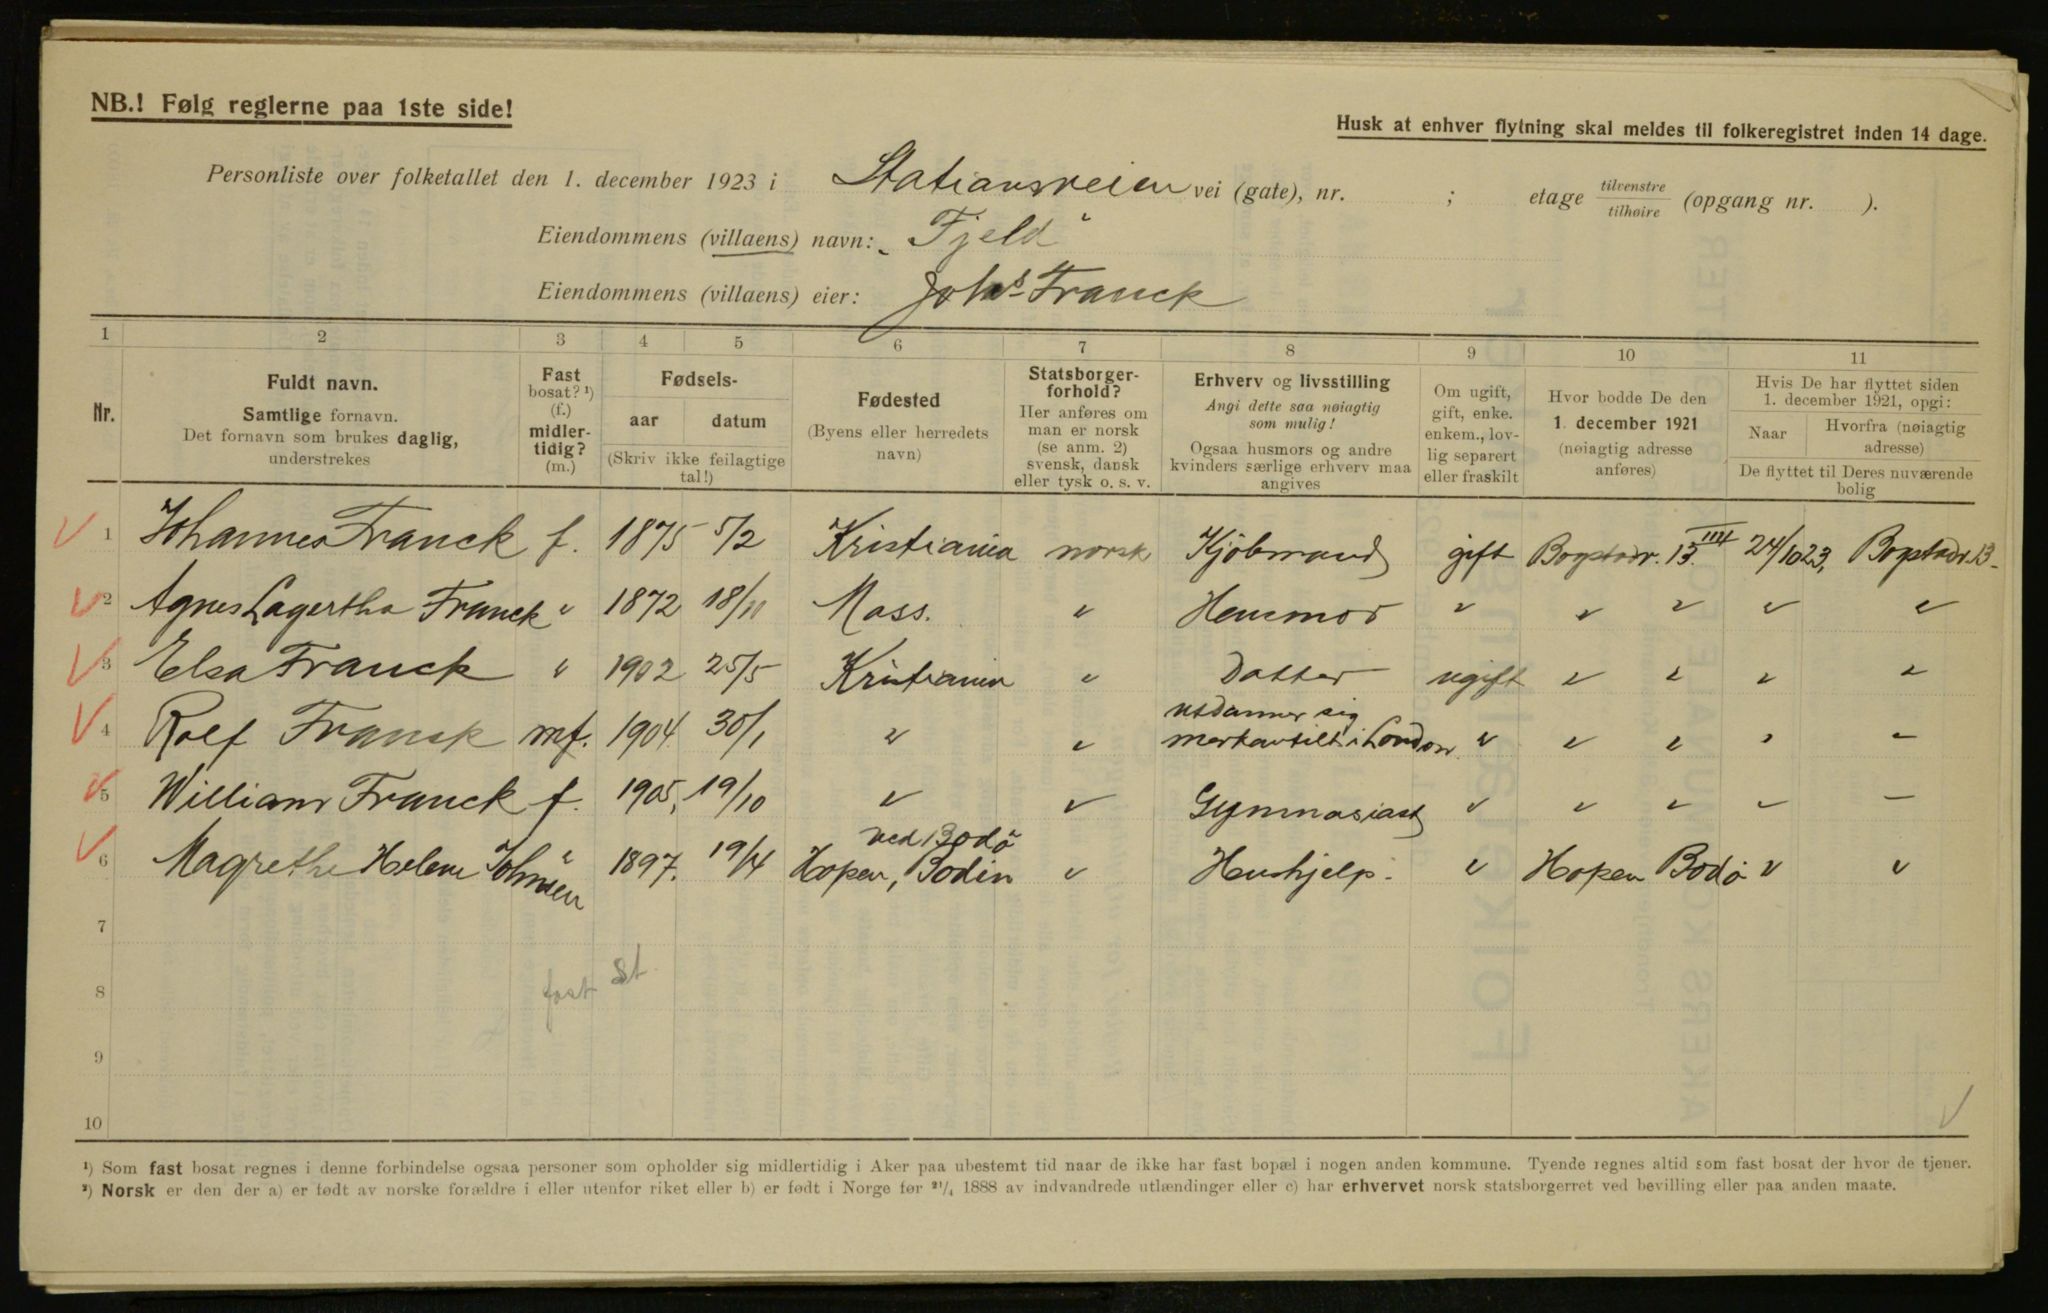 NB.! Følg reglerne paa 1ste side!
Husk at enhver flytning skal meldes til folkeregistret inden 14 dage.
Personliste over folketallet den 1. december 1923 i Stationsveien vei (gate), nr. ; etage tilvenstre/tilhøire (opgang nr. ).
Eiendommens (villaens) navn: „Fjeld"
Eiendommens (villaens) eier: Johs. Franck
1 2 3 4 5 6 7 8 9 10 11
Nr. Fuldt navn. Samtlige fornavn. Det fornavn som brukes daglig, understrekes
Fast bosat? ¹) (f.) midlertidig? (m.)
Fødsels- aar datum (Skriv ikke feilagtige tal!)
Fødested (Byens eller herredets navn)
Statsborgerforhold? Her anføres om man er norsk (se anm. 2) svensk, dansk eller tysk o. s. v.
Erhverv og livsstilling Angi dette saa nøiagtig som mulig! Ogsaa husmors og andre kvinders særlige erhverv maa angives
Om ugift, gift, enke. enkem., lovlig separert eller fraskilt
Hvor bodde De den 1. december 1921 (nøiagtig adresse anføres)
Hvis De har flyttet siden 1. december 1921, opgi: Naar Hvorfra (nøiagtig adresse) De flyttet til Deres nuværende bolig
1 Johannes Franck f. 1875 5/2 Kristiania norsk Kjöbmand gift Bogstadv. 13 III 24/10 23, Bogstadv. 13
2 Agnes Lagertha Franck " 1872 18/11 Moss. " Husmor " " " " "
3 Elsa Franck " 1902 25/5 Kristiania " Datter ugift " " " "
4 Rolf Franck mf. 1904 30/1 " " utdanner sig merkantilt i London " " " " "
5 William Franck f. 1905, 19/10 " " Gymnasiast " " " " "
6 Magrethe Helene Johnsen " 1897. 19/4 Hopen, Bodin ved Bodö " Hushjelp. " Hopen Bodö " "
7
fast st
8
9
10
¹) Som fast bosat regnes i denne forbindelse ogsaa personer som opholder sig midlertidig i Aker paa ubestemt tid naar de ikke har fast bopæl i nogen anden kommune. Tyende regnes altid som fast bosat der hvor de tjener.
²) Norsk er den der a) er født av norske forældre i eller utenfor riket eller b) er født i Norge før ²¹/₄ 1888 av indvandrede utlændinger eller c) har erhvervet norsk statsborgerret ved bevilling eller paa anden maate.